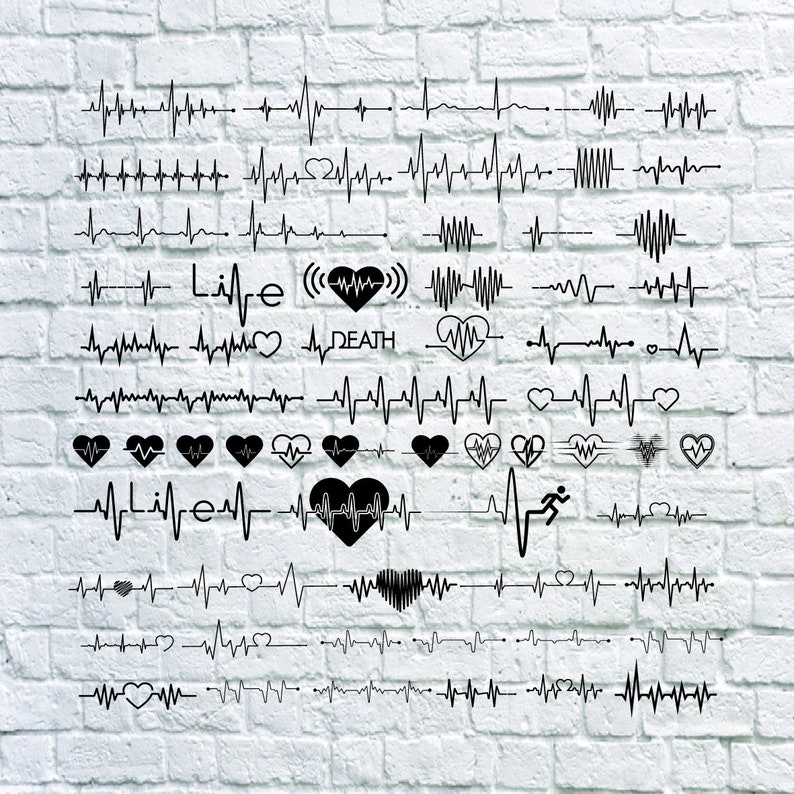 Life
DEATH
Life